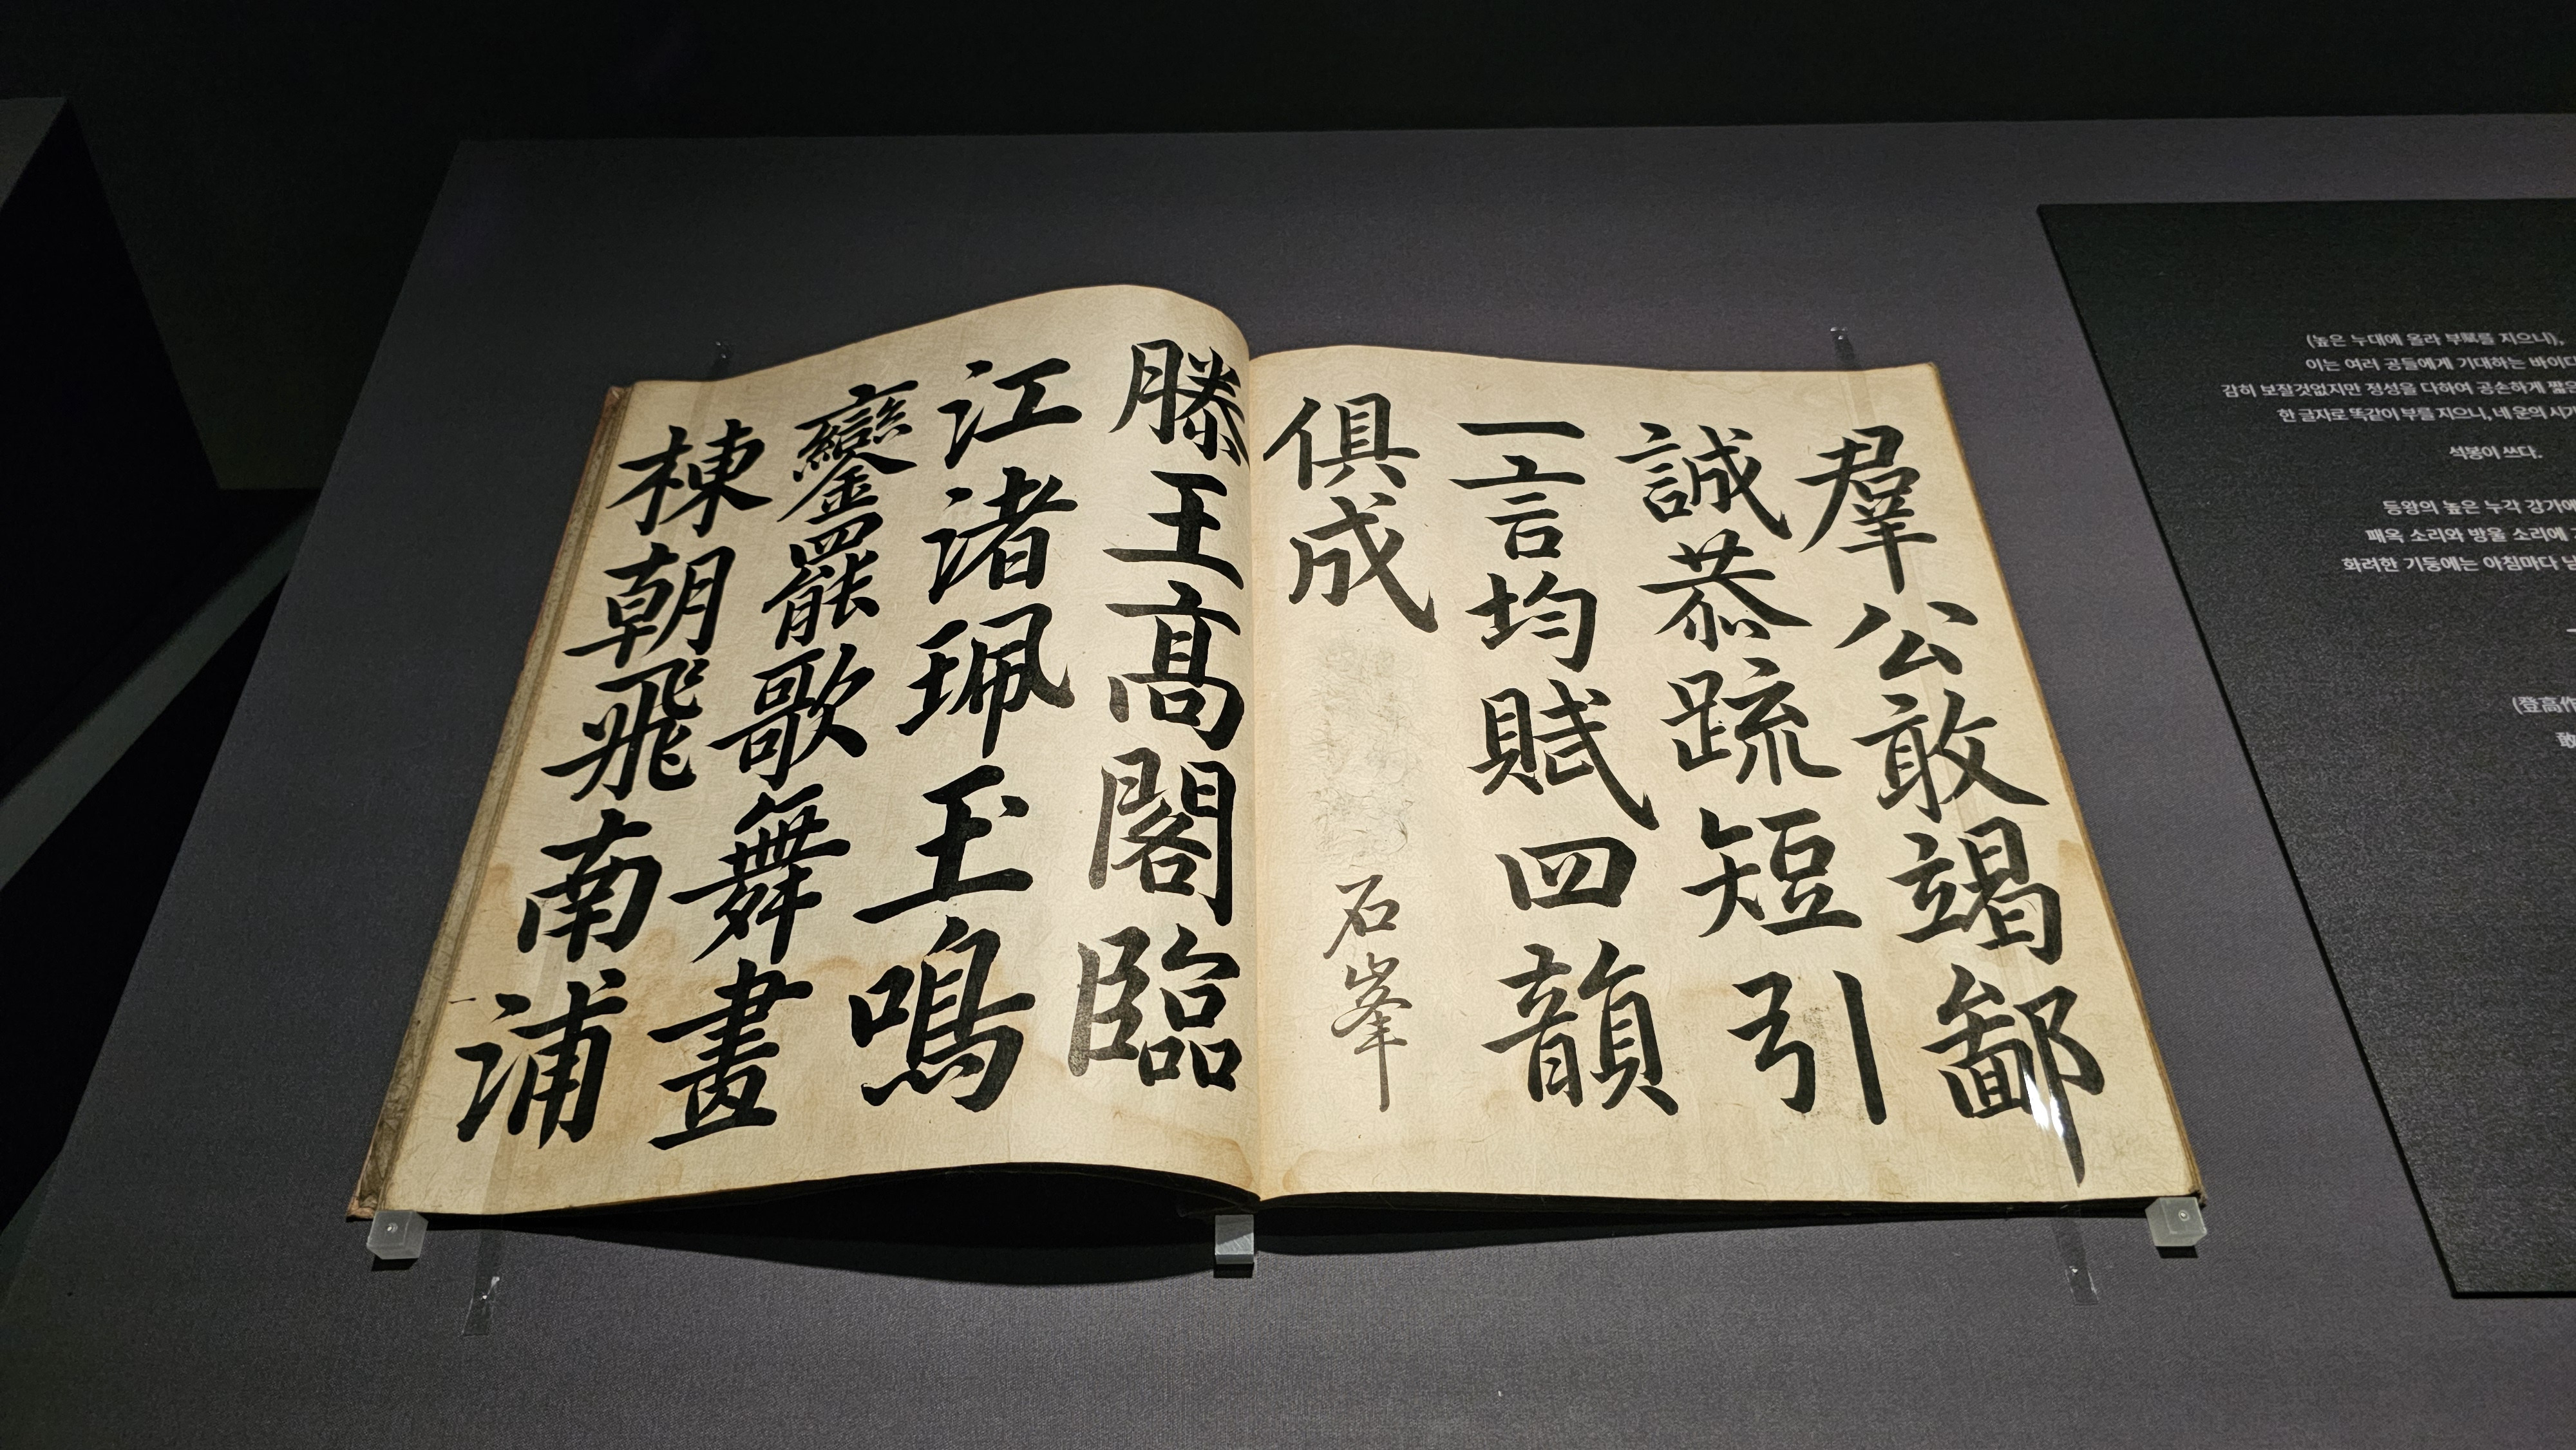 羣公敢竭鄙
誠恭疏短引
一言均賦四韻
俱成
石峯
滕王高閣臨
江渚珮玉鳴
鑾罷歌舞畫
棟朝飛南浦
(높은 누대에 올라 부賦를 지으니),
이는 여러 공들에게 기대하는 바이다
감히 보잘것없지만 정성을 다하여 공손하게 짧은
한 글자로 똑같이 부를 지으니, 네 운의 시가
석봉이 쓰다.
등왕의 높은 누각 강가에
패옥 소리와 방울 소리에
화려한 기둥에는 아침마다 남
(登高作
敢